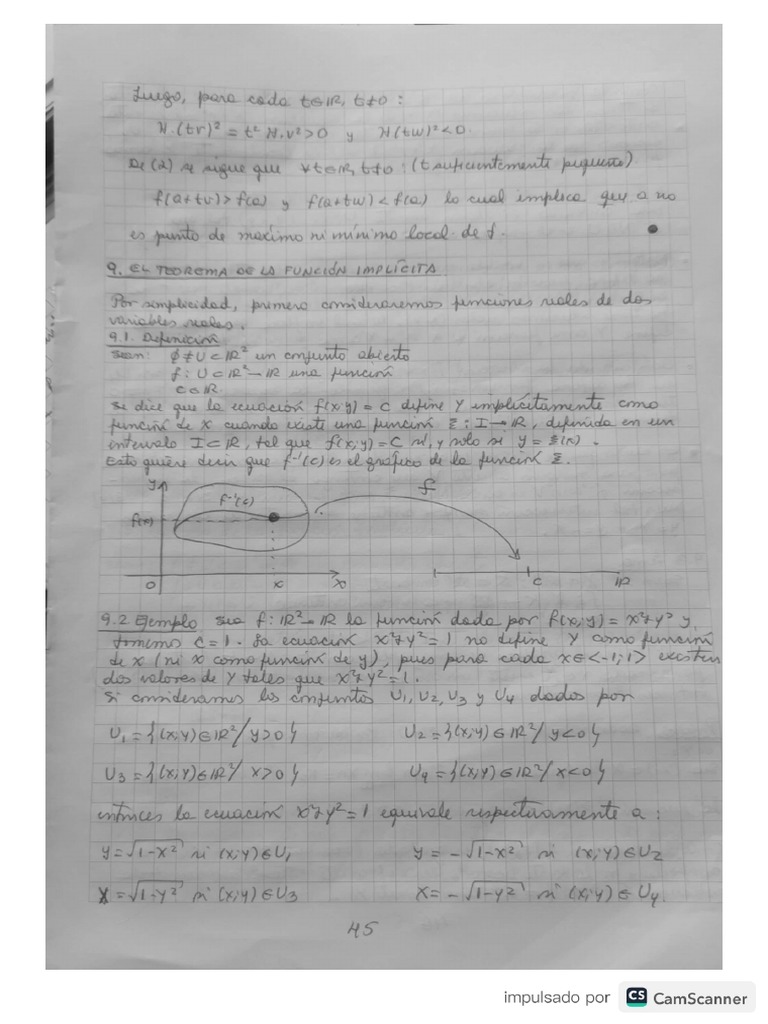 Luego, para cada t∈IR, t≠0 :
H.(tv)² = t² H.v² > 0 y H(tw)² < 0.
De (2) se sigue que ∀t∈IR, t≠0 : (t suficientemente pequeño)
f(a+tv) > f(a) y f(a+tw) < f(a) lo cual implica que a no
es punto de máximo ni mínimo local de f.
9. EL TEOREMA DE LA FUNCIÓN IMPLÍCITA
Por simplicidad, primero consideraremos funciones reales de dos
variables reales.
9.1. Definición
Sean: ϕ ≠ U ⊂ IR² un conjunto abierto
f : U ⊂ IR² → IR una función
C ∈ IR.
Se dice que la ecuación f(x;y) = C define Y implícitamente como
función de X cuando existe una función ξ : I → IR, definida en un
intervalo I ⊂ IR, tal que f(x;y) = C si, y solo si y = ξ(x).
Esto quiere decir que f⁻¹(c) es el gráfico de la función ξ.
y
f⁻¹(c)
f
f(x)
O
x
X
C
IR
9.2 Ejemplo Sea f : IR² → IR la función dada por f(x;y) = x²+y² y
tomemos C = 1. La ecuación x²+y² = 1 no define Y como función
de x (ni x como función de y), pues para cada x∈<-1;1> existen
dos valores de Y tales que x²+y² = 1.
Si consideramos los conjuntos U₁, U₂, U₃ y U₄ dados por
U₁ = {(x;y)∈IR² / y>0} U₂ = {(x;y)∈IR² / y<0}
U₃ = {(x;y)∈IR² / x>0} U₄ = {(x;y)∈IR² / x<0}
entonces la ecuación x²+y² = 1 equivale respectivamente a :
y = √1-x² si (x;y)∈U₁ y = -√1-x² si (x;y)∈U₂
X = √1-y² si (x;y)∈U₃ X = -√1-y² si (x;y)∈U₄.
45
impulsado por CS CamScanner